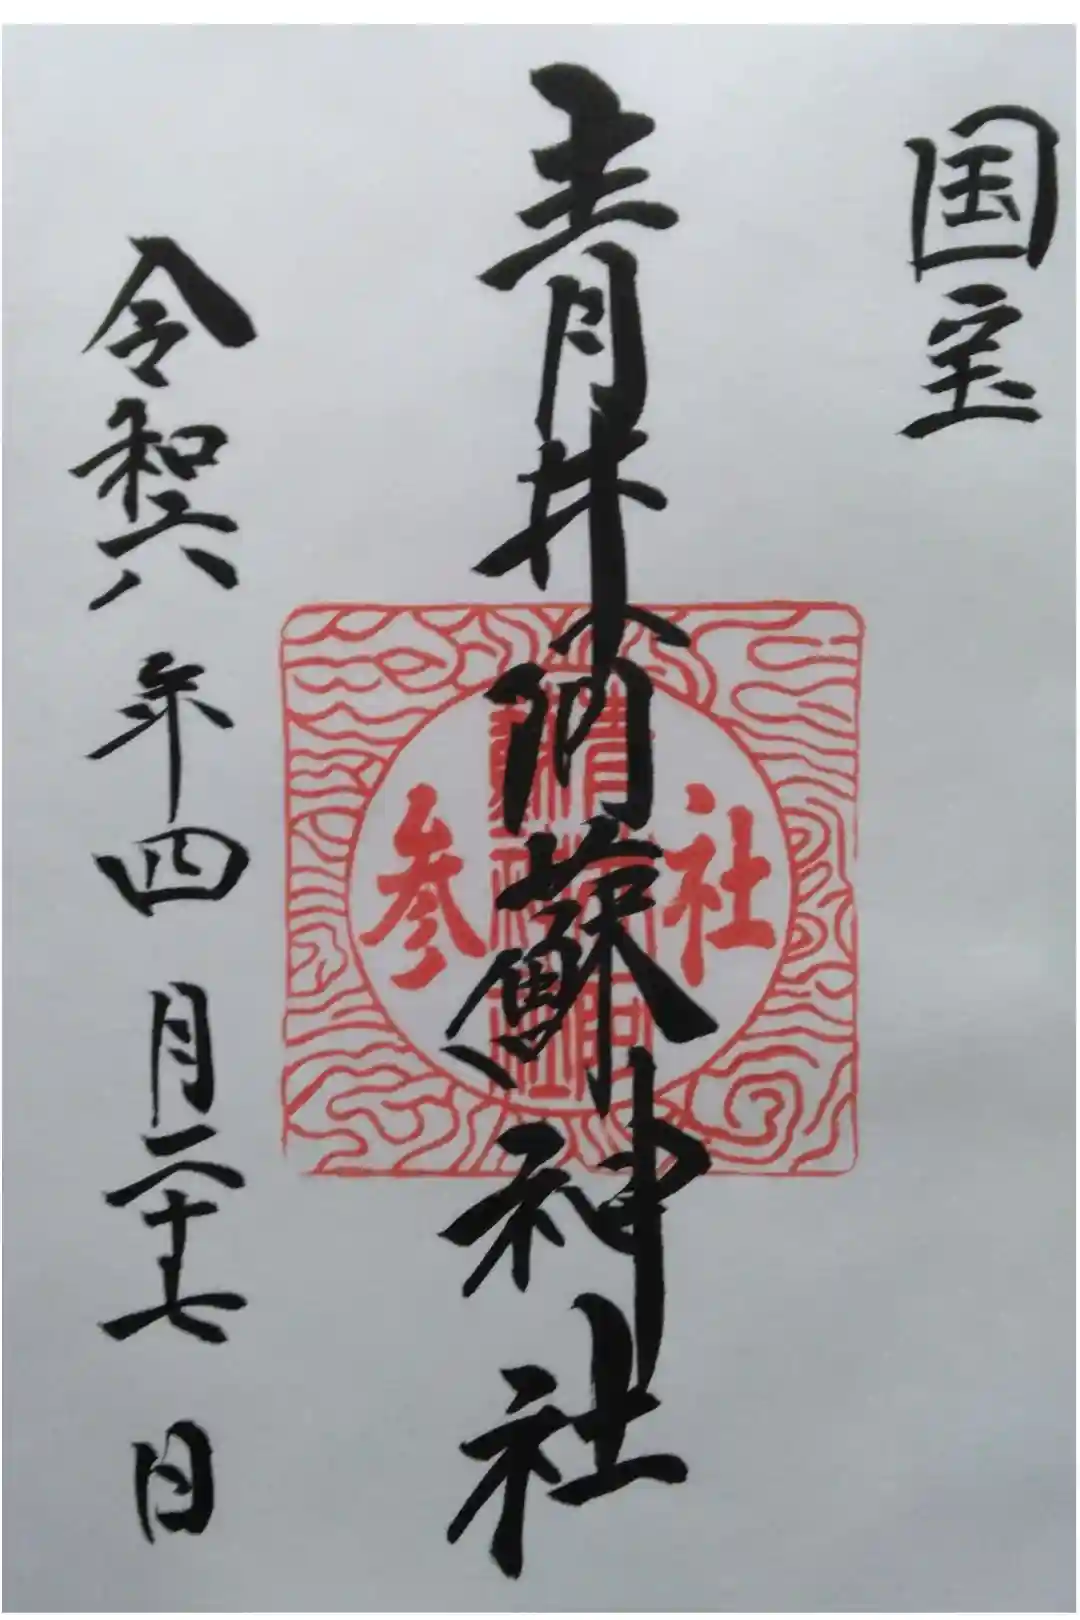 国宝
青井阿蘇神社
社参
青井阿蘇神社
令和六年四月二十七日